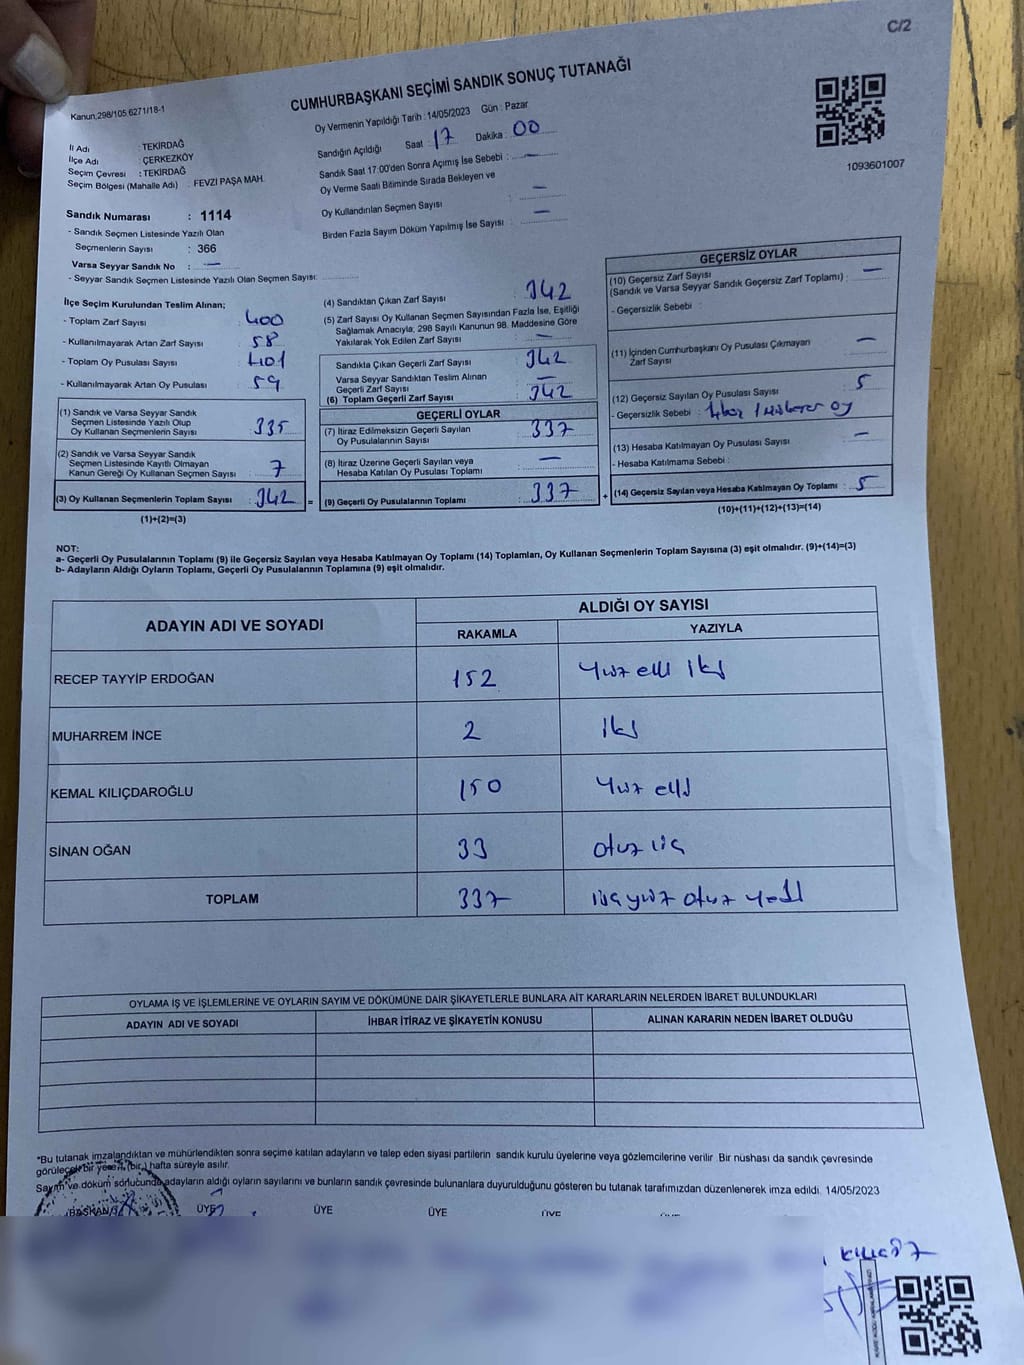 C/2
Kanun,298/105 6271/18-1
CUMHURBAŞKANI SEÇİMİ SANDIK SONUÇ TUTANAĞI
Oy Vermenin Yapıldığı Tarih : 14/05/2023 Gün : Pazar
Sandığın Açıldığı Saat 17 Dakika : 00
Sandık Saat 17:00'den Sonra Açımış İse Sebebi : —
Oy Verme Saati Bitiminde Sırada Bekleyen ve
Oy Kullandırılan Seçmen Sayısı : —
Birden Fazla Sayım Döküm Yapılmış İse Sayısı : —
1093601007
İl Adı : TEKİRDAĞ
İlçe Adı : ÇERKEZKÖY
Seçim Çevresi : TEKİRDAĞ
Seçim Bölgesi (Mahalle Adı) : FEVZİ PAŞA MAH.
Sandık Numarası : 1114
- Sandık Seçmen Listesinde Yazılı Olan
Seçmenlerin Sayısı : 366
Varsa Seyyar Sandık No : —
- Seyyar Sandık Seçmen Listesinde Yazılı Olan Seçmen Sayısı:
İlçe Seçim Kurulundan Teslim Alınan;
- Toplam Zarf Sayısı : 400
- Kullanılmayarak Artan Zarf Sayısı : 58
- Toplam Oy Pusulası Sayısı : 401
- Kullanılmayarak Artan Oy Pusulası : 59
(1) Sandık ve Varsa Seyyar Sandık
Seçmen Listesinde Yazılı Olup
Oy Kullanan Seçmenlerin Sayısı : 335
(2) Sandık ve Varsa Seyyar Sandık
Seçmen Listesinde Kayıtlı Olmayan
Kanun Gereği Oy Kullanan Seçmen Sayısı : 7
(3) Oy Kullanan Seçmenlerin Toplam Sayısı : 342 =
(1)+(2)=(3)
(4) Sandıktan Çıkan Zarf Sayısı : 342
(5) Zarf Sayısı Oy Kullanan Seçmen Sayısından Fazla İse, Eşitliği
Sağlamak Amacıyla, 298 Sayılı Kanunun 98. Maddesine Göre
Yakılarak Yok Edilen Zarf Sayısı : —
Sandıkta Çıkan Geçerli Zarf Sayısı : 342
Varsa Seyyar Sandıktan Teslim Alınan
Geçerli Zarf Sayısı : —
(6) Toplam Geçerli Zarf Sayısı : 342
GEÇERLİ OYLAR
(7) İtiraz Edilmeksizin Geçerli Sayılan
Oy Pusulalarının Sayısı : 337
(8) İtiraz Üzerine Geçerli Sayılan veya
Hesaba Katılan Oy Pusulası Toplamı : —
(9) Geçerli Oy Pusulalarının Toplamı : 337 +
GEÇERSİZ OYLAR
(10) Geçersiz Zarf Sayısı
(Sandık ve Varsa Seyyar Sandık Geçersiz Zarf Toplamı) : —
- Geçersizlik Sebebi :
(11) İçinden Cumhurbaşkanı Oy Pusulası Çıkmayan
Zarf Sayısı : —
(12) Geçersiz Sayılan Oy Pusulası Sayısı : 5
- Geçersizlik Sebebi : oy
(13) Hesaba Katılmayan Oy Pusulası Sayısı : —
- Hesaba Katılmama Sebebi :
(14) Geçersiz Sayılan veya Hesaba Katılmayan Oy Toplamı : 5
(10)+(11)+(12)+(13)=(14)
NOT:
a- Geçerli Oy Pusulalarının Toplamı (9) ile Geçersiz Sayılan veya Hesaba Katılmayan Oy Toplamı (14) Toplamları, Oy Kullanan Seçmenlerin Toplam Sayısına (3) eşit olmalıdır. (9)+(14)=(3)
b- Adayların Aldığı Oyların Toplamı, Geçerli Oy Pusulalarının Toplamına (9) eşit olmalıdır.
ADAYIN ADI VE SOYADI
ALDIĞI OY SAYISI
RAKAMLA YAZIYLA
RECEP TAYYİP ERDOĞAN 152 Yüz elli iki
MUHARREM İNCE 2 iki
KEMAL KILIÇDAROĞLU 150 Yüz elli
SİNAN OĞAN 33 otuz üç
TOPLAM 337 üçyüz otuz yedi
OYLAMA İŞ VE İŞLEMLERİNE VE OYLARIN SAYIM VE DÖKÜMÜNE DAİR ŞİKAYETLERLE BUNLARA AİT KARARLARIN NELERDEN İBARET BULUNDUKLARI
ADAYIN ADI VE SOYADI İHBAR İTİRAZ VE ŞİKAYETİN KONUSU ALINAN KARARIN NEDEN İBARET OLDUĞU
*Bu tutanak imzalandıktan ve mühürlendikten sonra seçime katılan adayların ve talep eden siyasi partilerin sandık kurulu üyelerine veya gözlemcilerine verilir. Bir nüshası da sandık çevresinde
görülecek bir yere (bir) hafta süreyle asılır.
Sayım ve döküm sonucunda adayların aldığı oyların sayılarını ve bunların sandık çevresinde bulunanlara duyurulduğunu gösteren bu tutanak tarafımızdan düzenlenerek imza edildi. 14/05/2023
BAŞKAN ÜYE ÜYE ÜYE ÜYE ÜYE